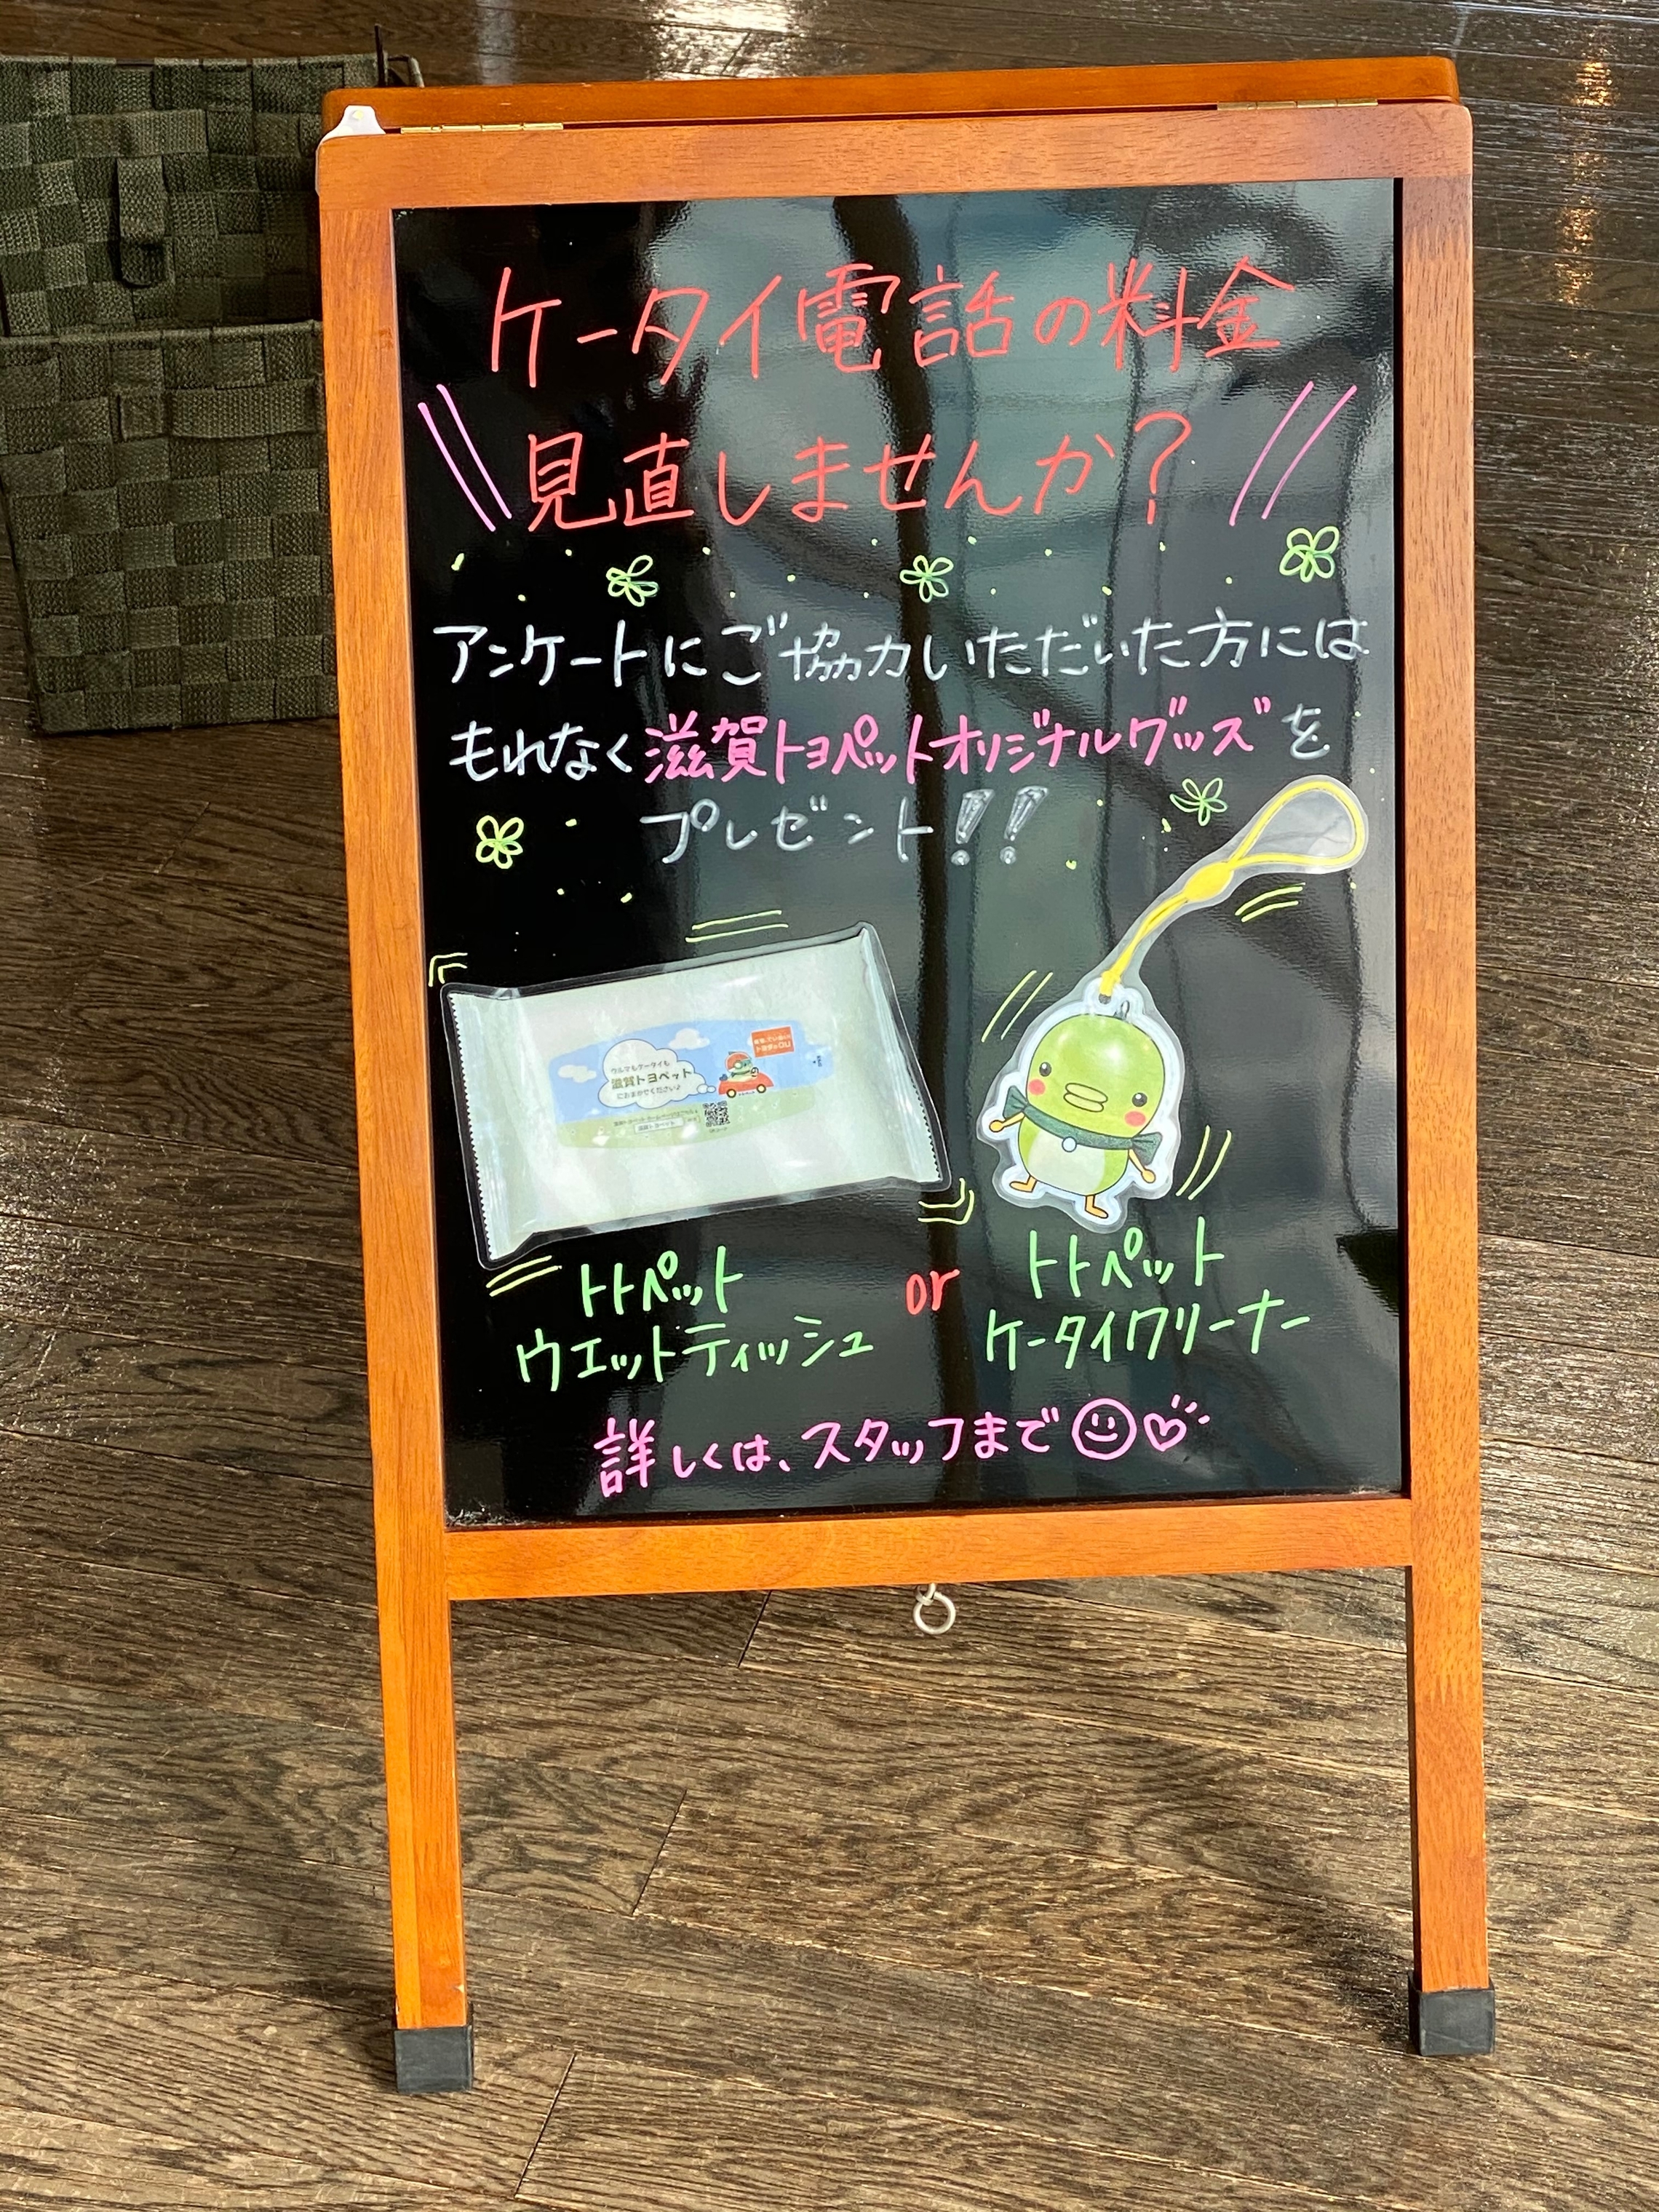 ケータイ電話の料金
見直しませんか？
アンケートにご協力いただいた方には
もれなく滋賀トヨペットオリジナルグッズを
プレゼント!!
クルマもケータイも
滋賀トヨペット
におまかせください♪
トトペット
ウエットティッシュ
or
トトペット
ケータイクリーナー
詳しくは、スタッフまで